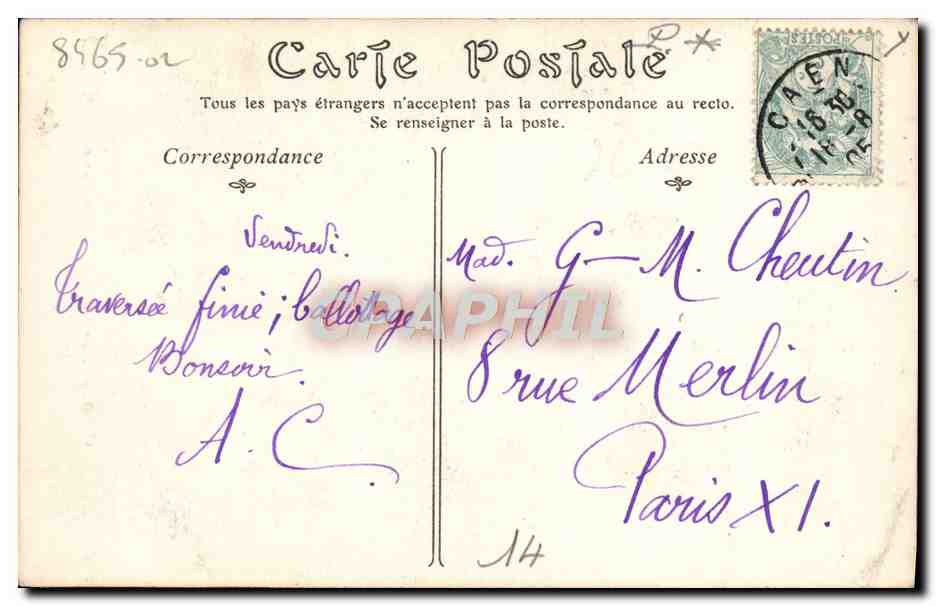 8465-02
P *
Carte Postale
Tous les pays étrangers n'acceptent pas la correspondance au recto.
Se renseigner à la poste.
Correspondance
Adresse
POSTES
CAEN
Vendredi.
Traversée finie; ballottage
Bonsoir.
A. C.
Mad. G-M. Cheutin
8 rue Merlin
Paris XI.
14
CPAPHIL